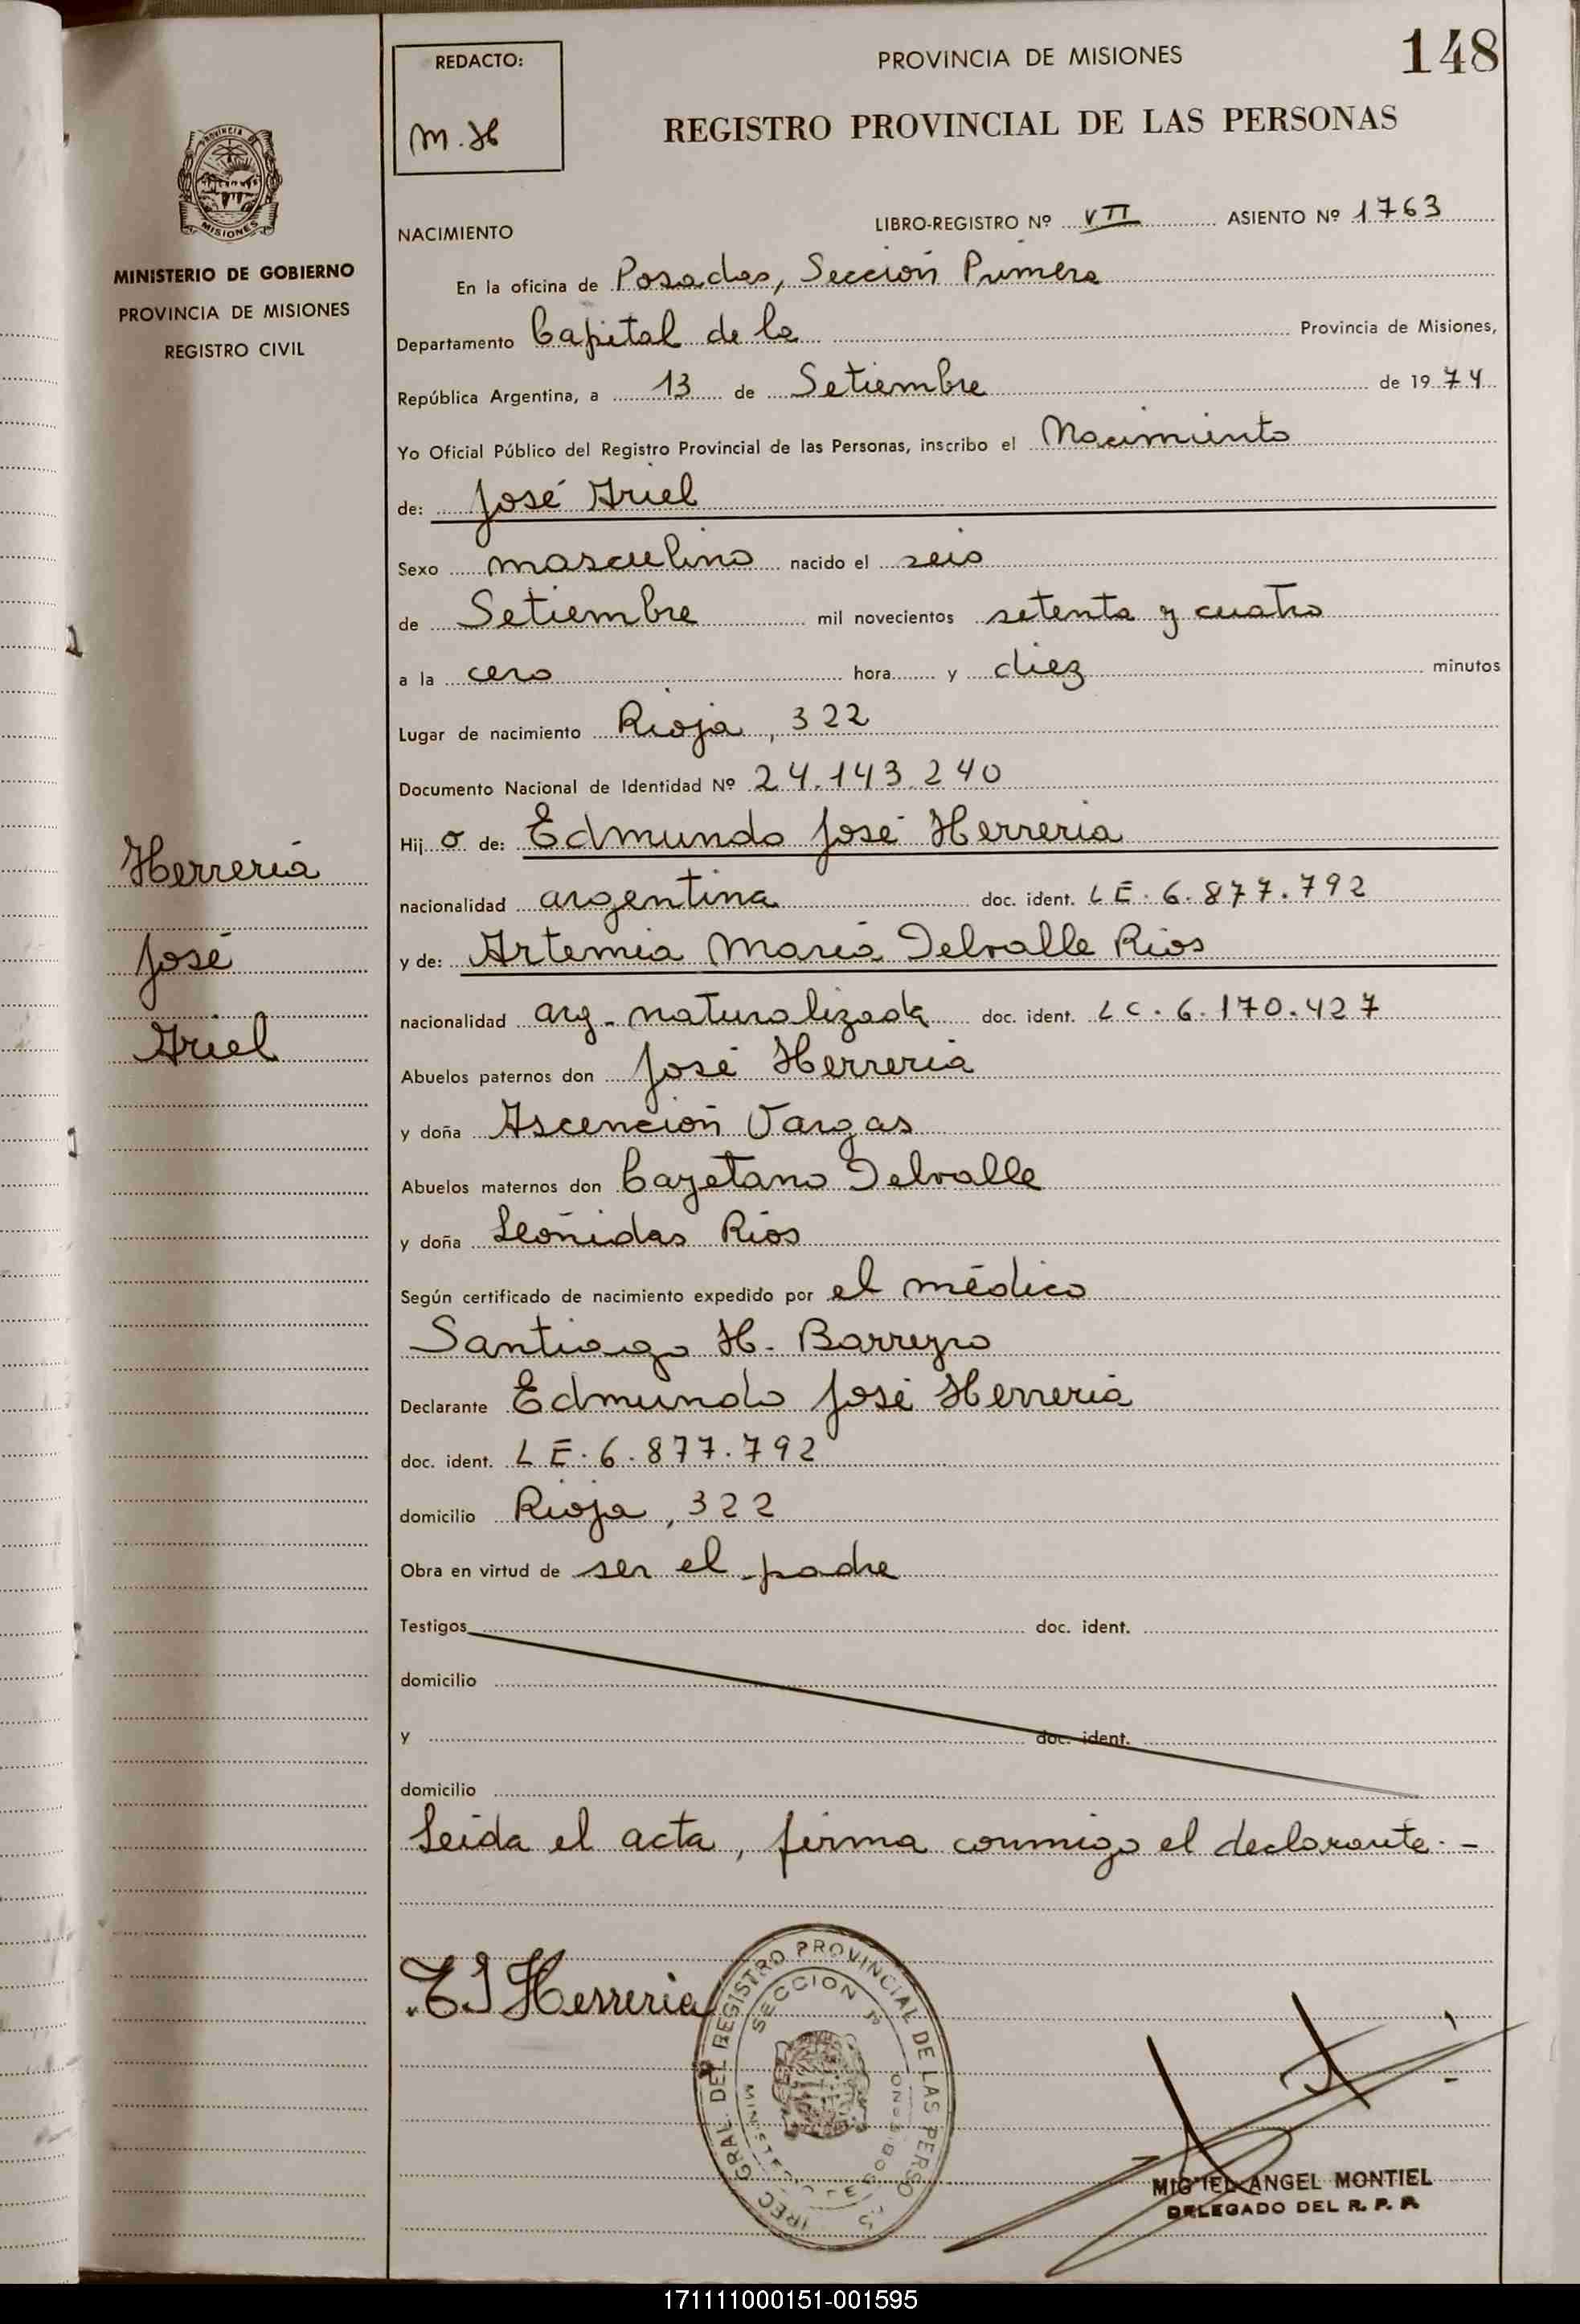 148
REDACTO:
M. H
PROVINCIA DE MISIONES
REGISTRO PROVINCIAL DE LAS PERSONAS
PROVINCIA
MISIONES
MINISTERIO DE GOBIERNO
PROVINCIA DE MISIONES
REGISTRO CIVIL
NACIMIENTO LIBRO-REGISTRO Nº VII ASIENTO Nº 1763
En la oficina de Posadas, Sección Primera
Departamento Capital de la Provincia de Misiones,
República Argentina, a 13 de Setiembre de 1974
Yo Oficial Público del Registro Provincial de las Personas, inscribo el Nacimiento
de: José Ariel
Sexo masculino nacido el seis
de Setiembre mil novecientos setenta y cuatro
a la cero hora y diez minutos
Lugar de nacimiento Rioja, 322
Documento Nacional de Identidad Nº 24.143.240
Hij o de: Edmundo José Herrería
nacionalidad argentina doc. ident. LE. 6.877.792
y de: Artemia María Delvalle Ríos
nacionalidad arg. naturalizada doc. ident. LC. 6.170.427
Abuelos paternos don José Herrería
y doña Ascención Vargas
Abuelos maternos don Cayetano Delvalle
y doña Leónidas Ríos
Según certificado de nacimiento expedido por el médico
Santiago H. Barreyro
Declarante Edmundo José Herrería
doc. ident. LE. 6.877.792
domicilio Rioja, 322
Obra en virtud de ser el padre
Testigos doc. ident.
domicilio
y doc. ident.
domicilio
Leída el acta, firma conmigo el declarante.-
Herrería
José
Ariel
E J Herreria
GRAL. DEL REGISTRO PROVINCIAL DE LAS PERSO
SECCION 1ª
MIGUEL ANGEL MONTIEL
DELEGADO DEL R. P. P.
171111000151-001595